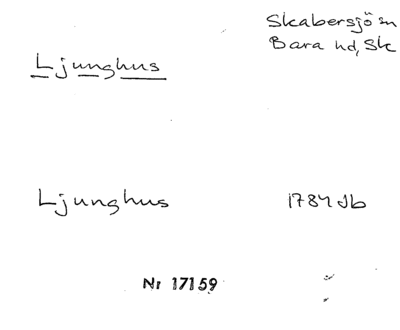 Skabersjö sn
Bara hd, Sk
Ljunghus
Ljunghus 1784 Jb
Nr 17159